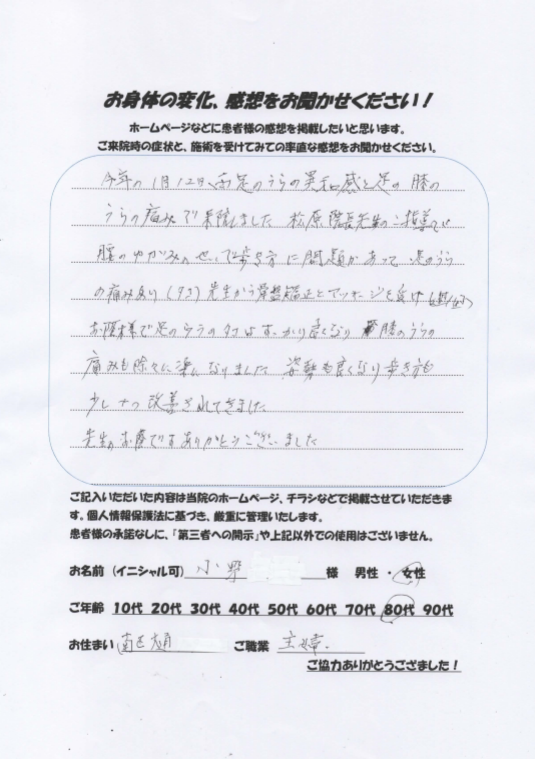 お身体の変化、感想をお聞かせください！
ホームページなどに患者様の感想を掲載したいと思います。
ご来院時の症状と、施術を受けてみての率直な感想をお聞かせください。
今年の1月12日、両足のうらの異和感と足の膝の
うらの痛みで来院しました 松原院長先生のご指導で
腰のゆがみのせいで歩き方に問題があって足のうら
の痛みあり(タコ)先生から骨盤矯正とマッサージを受け
お陰様で足のウラのタコはすっかり良くなり 膝のうらの
痛みも除々に楽になりました 姿勢も良くなり歩き方も
少しずつ改善されてきました
先生のお蔭です ありがとうございました
ご記入いただいた内容は当院のホームページ、チラシなどで掲載させていただきま
す。個人情報保護法に基づき、厳重に管理いたします。
患者様の承諾なしに、「第三者への開示」や上記以外での使用はございません。
お名前（イニシャル可） 小 様 男性 ・ 女性
ご年齢 10代 20代 30代 40代 50代 60代 70代 80代 90代
お住まい 南区 ご職業 主婦
ご協力ありがとうござました！